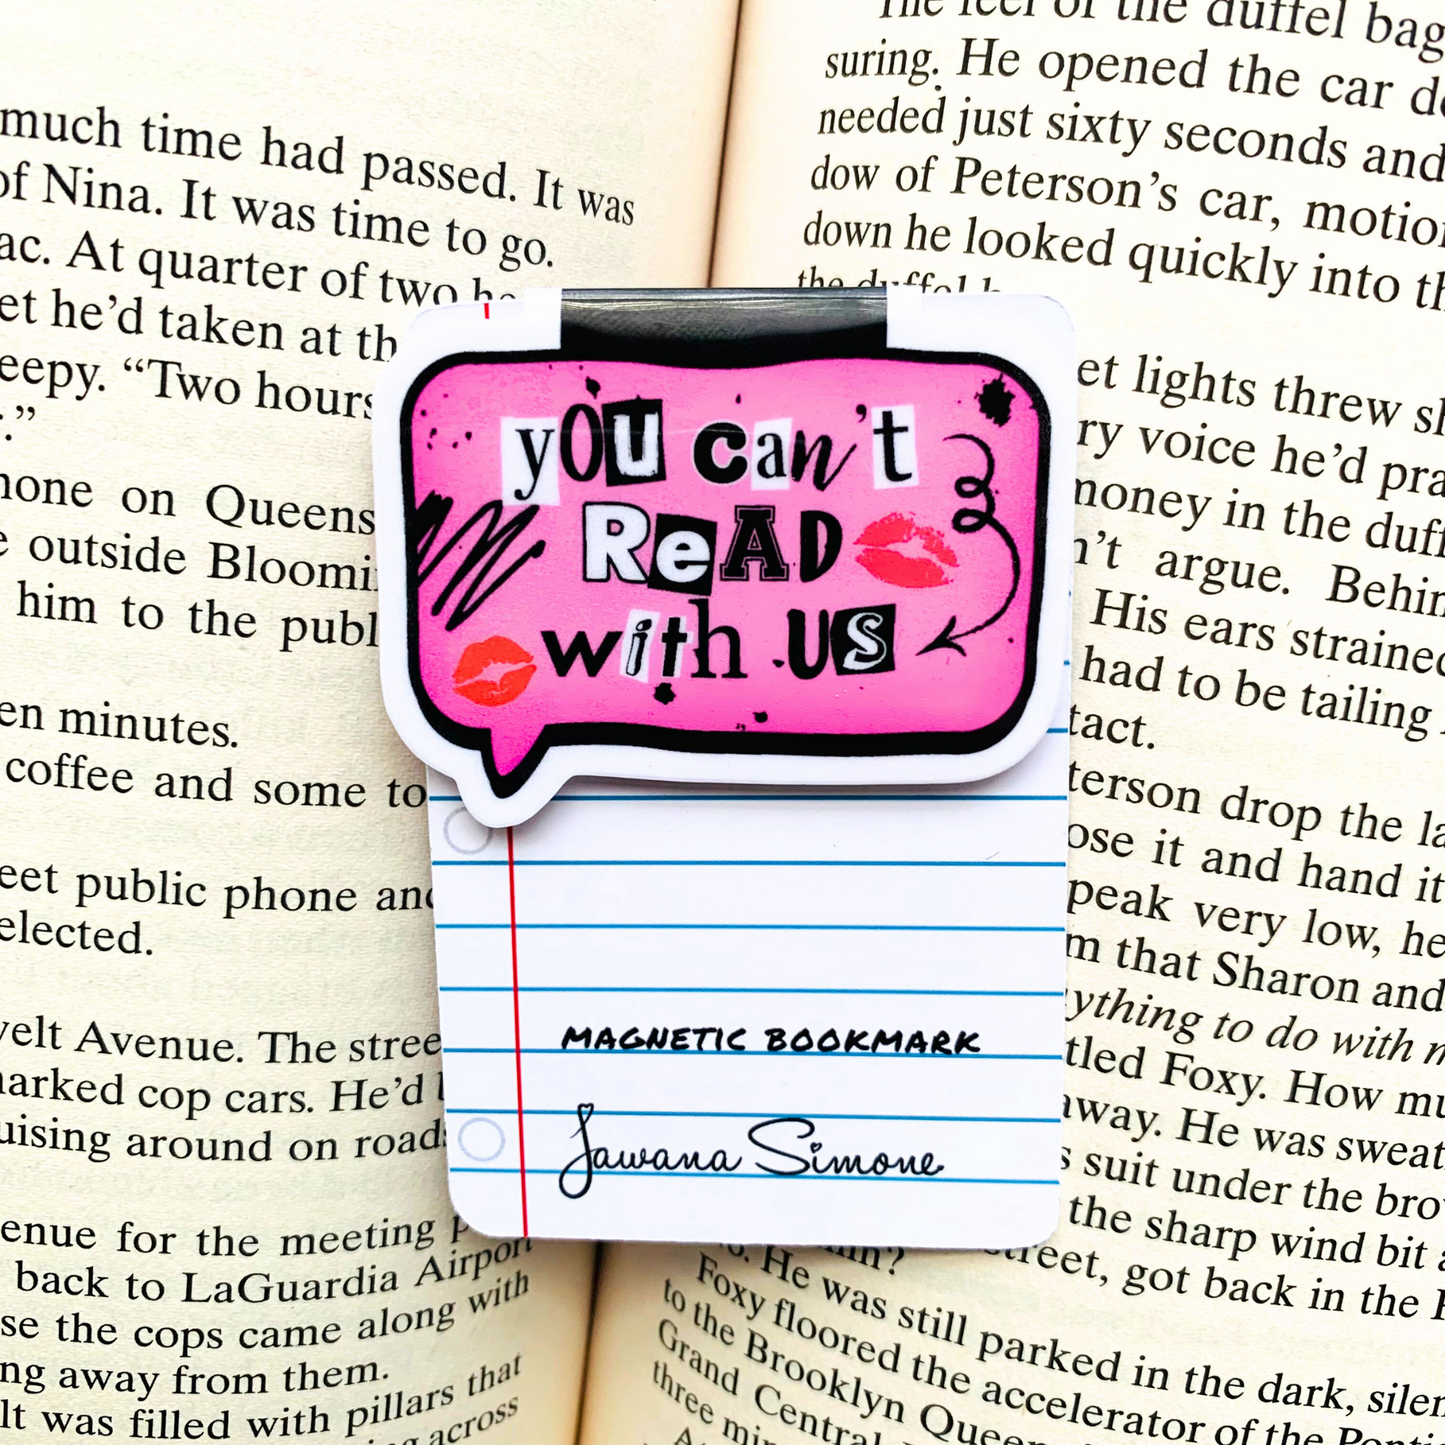 much time had passed. It was
of Nina. It was time to go.
ac. At quarter of two he
et he'd taken at th
eepy. "Two hours
."
hone on Queens
e outside Bloomi
him to the publ
en minutes.
coffee and some to
eet public phone and
elected.
velt Avenue. The stree
arked cop cars. He'd
uising around on road
enue for the meeting p
back to LaGuardia Airport
se the cops came along with
ng away from them.
lt was filled with pillars that
across
The feel of the duffel bag
suring. He opened the car do
needed just sixty seconds and
dow of Peterson's car, motion
down he looked quickly into th
the duffel b
et lights threw sh
ry voice he'd pra
money in the duff
n't argue. Behin
His ears strained
had to be tailing
tact.
terson drop the la
ose it and hand it
peak very low, he
m that Sharon and
ything to do with m
tled Foxy. How mu
away. He was sweat
s suit under the brow
the sharp wind bit a
street, got back in the P
He was still parked in the dark, silen
Foxy floored the accelerator of the Ponti
to the Brooklyn Queen
Grand Central
three min
you can't
ReAD
with us
MAGNETIC BOOKMARK
Jawana Simone